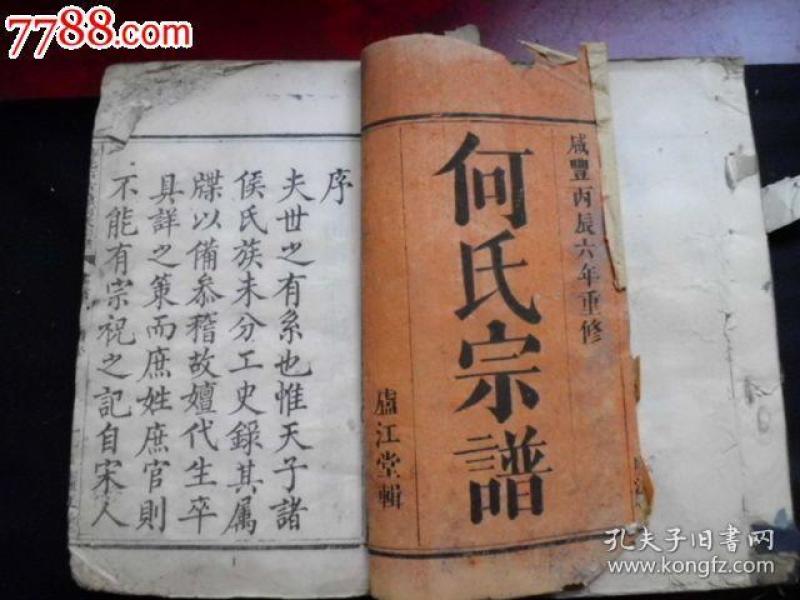 7788.com
咸豐丙辰六年重修
何氏宗譜
廬江堂輯
序
夫世之有系也惟天子諸
侯氏族未分工史錄其属
牒以備叅稽故嬗代生卒
具詳之策而庶姓庶官則
不能有宗祝之記自宋人
孔夫子旧書网
www.kongfz.com